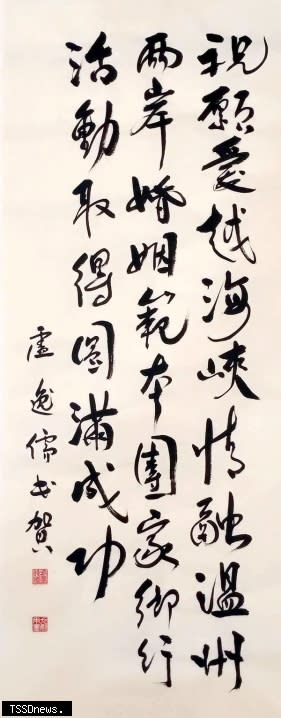 祝願愛越海峽情融溫州
兩岸婚姻範本團家鄉行
活動取得圓滿成功
盧逸儒書賀
TSSDnews.